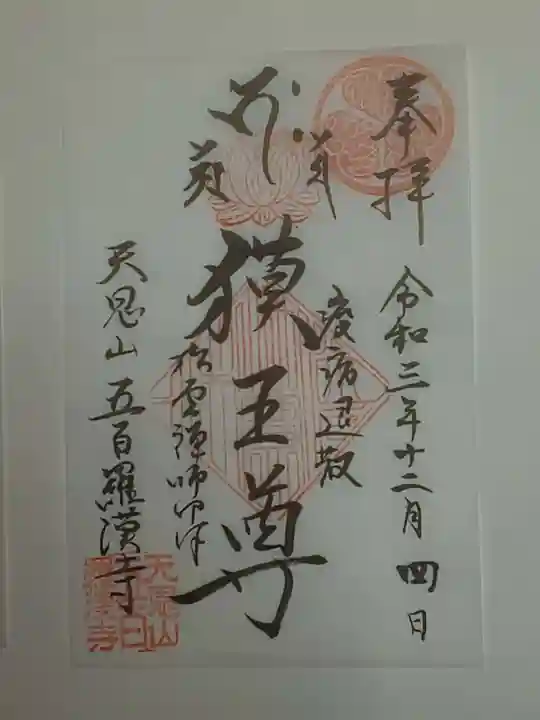 奉拝
令和三年十二月四日
疫病退散
獏王尊
松雲禅師御作
天恩山五百羅漢寺